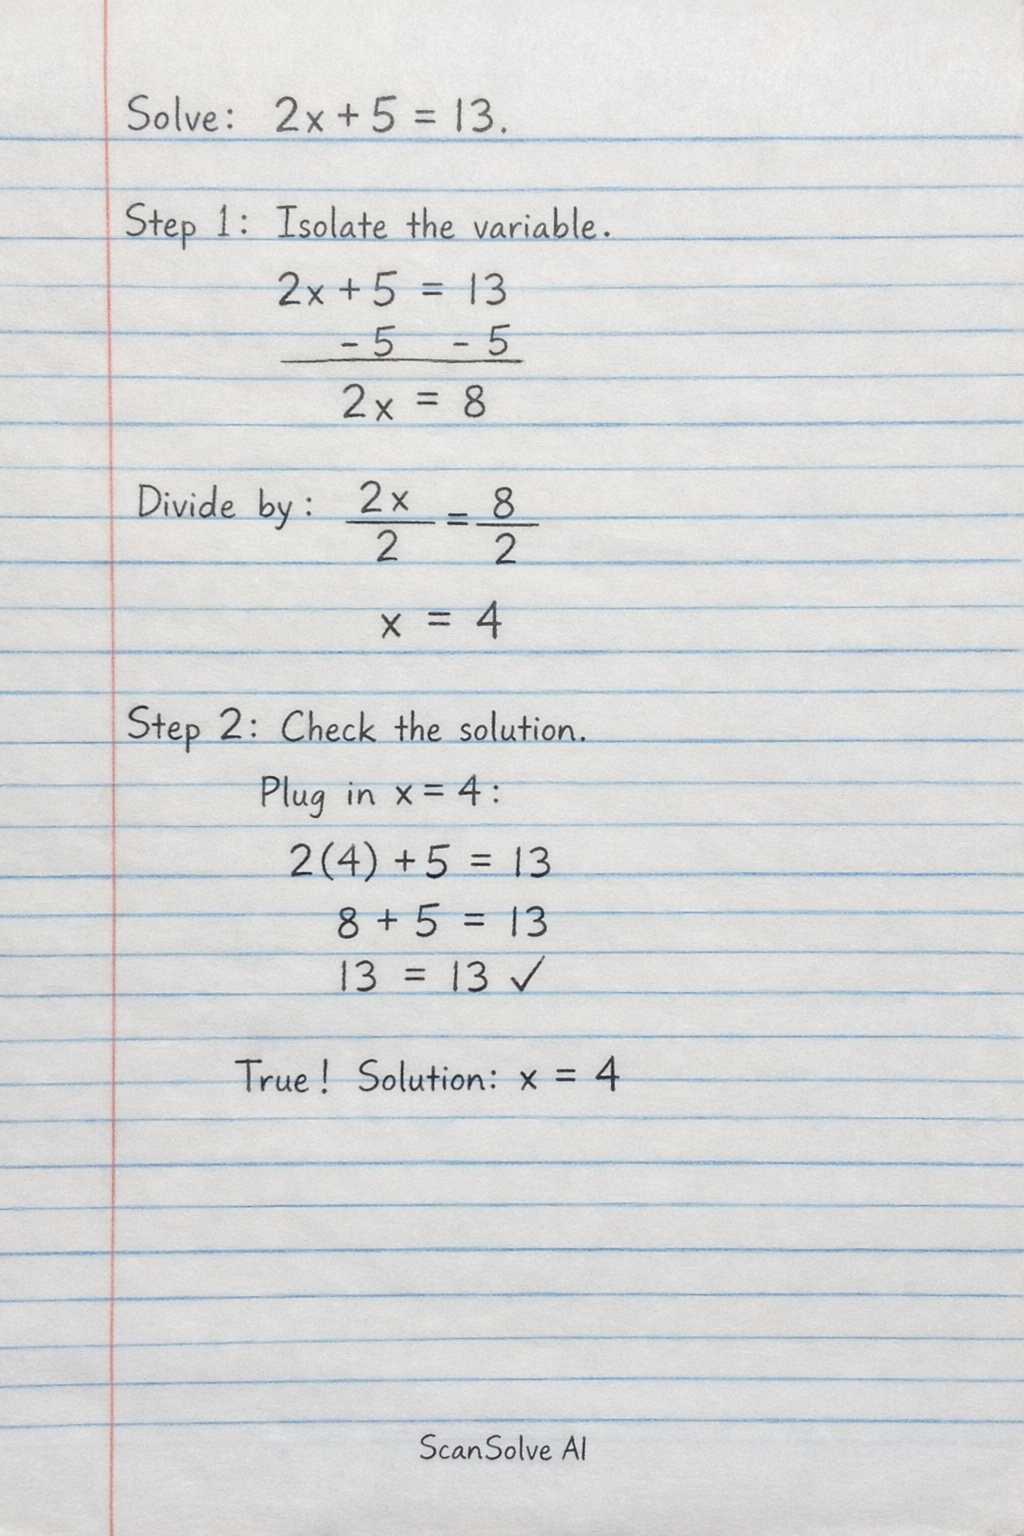 Solve: 2x + 5 = 13.
Step 1: Isolate the variable.
2x + 5 = 13
- 5 - 5
2x = 8
Divide by: 2x/2 = 8/2
x = 4
Step 2: Check the solution.
Plug in x = 4:
2(4) + 5 = 13
8 + 5 = 13
13 = 13 ✓
True! Solution: x = 4
ScanSolve AI